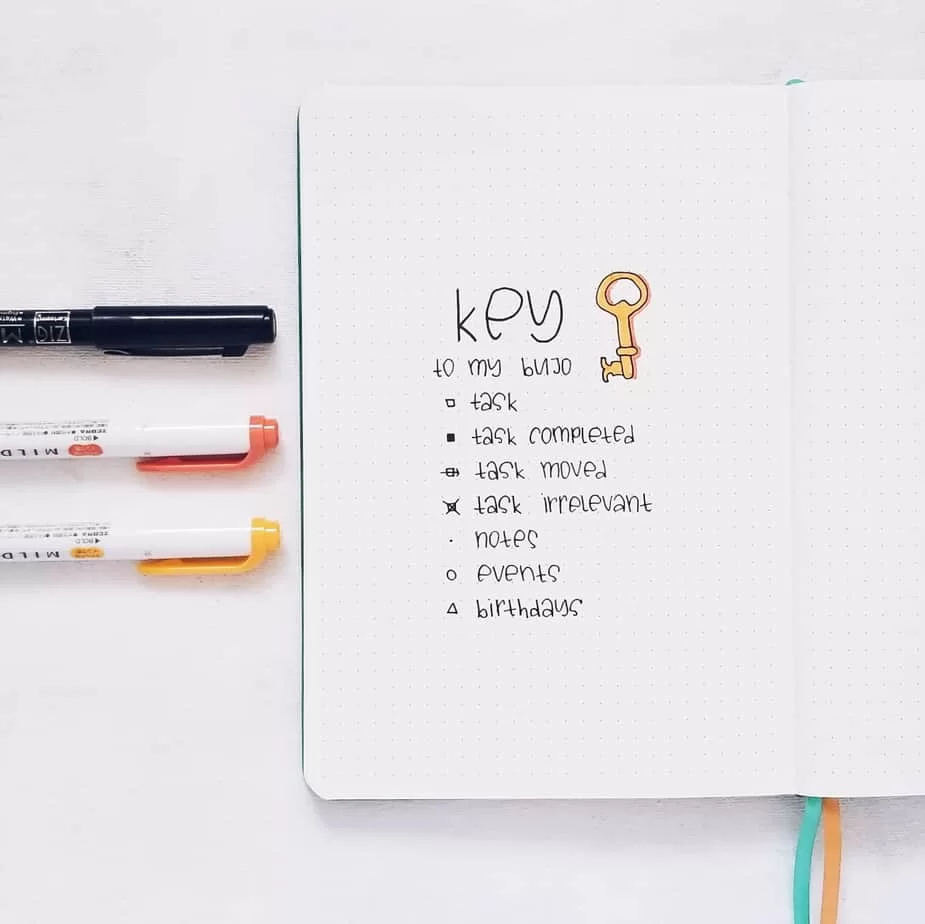 key
to my bujo
task
task completed
task moved
task irrelevant
notes
events
birthdays
ZIG
ZEBRA
BOLD
MILD
ZEBRA
BOLD
MILD